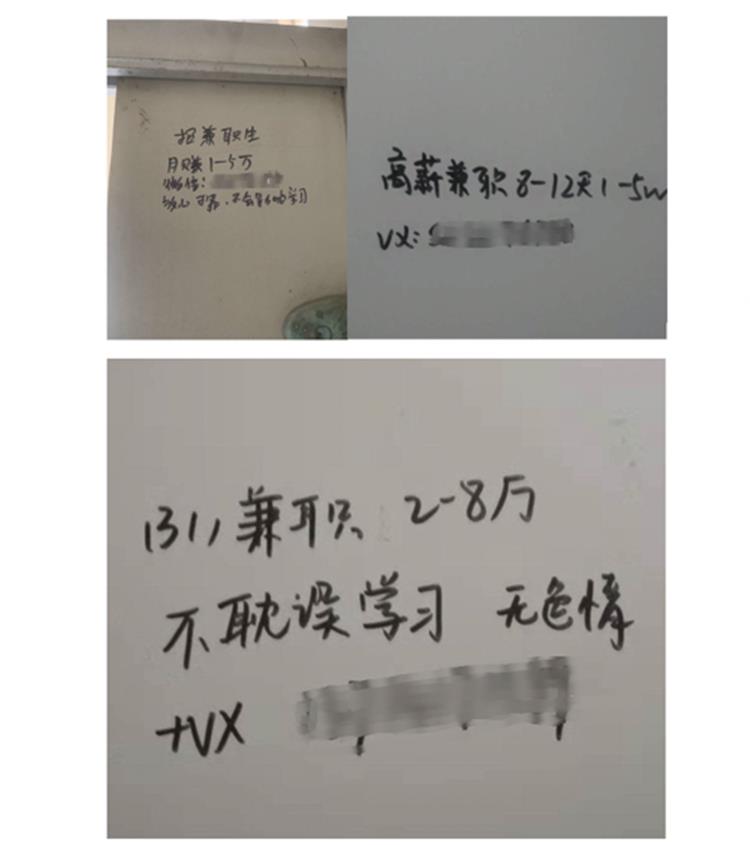 招兼职生
月赚1-5万
微信:
放心可靠,不会影响学习
高薪兼职8-12天1-5w
VX:
兼职 2-8万
不耽误学习 无色情
+VX